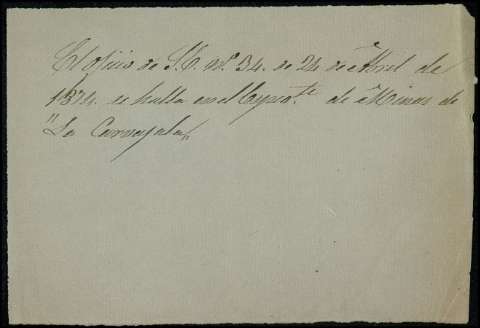 El oficio de S.C. nº 34. de 24 de Abril de
1874. se halla en el Expte. de Minas de
"La Carvajala"